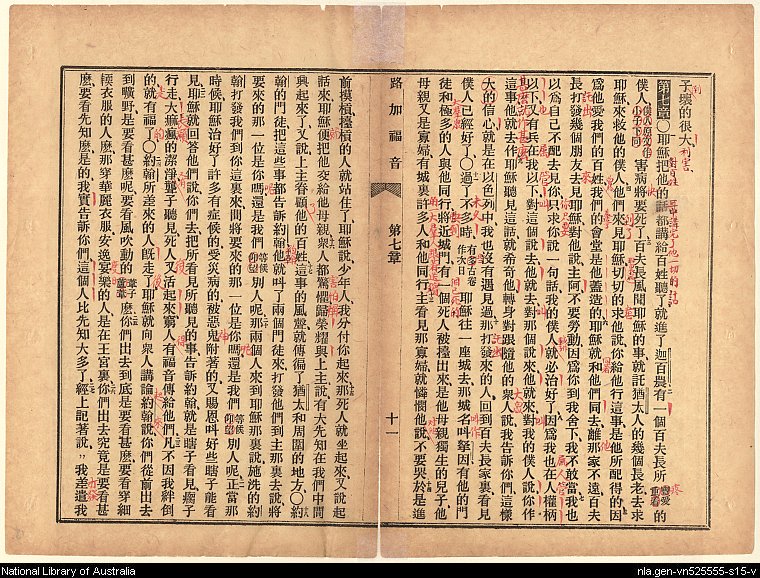 子壞的很大、
第七章○耶穌把他的話都講給百姓聽了就進了迦百農有一個百夫長所寶愛的
僕人害病將要死了百夫長風聞耶穌的事就託猶太人的幾個長老去求
耶穌來救他的僕人他們來見耶穌切切的求他說你給他行這事是他所配得的因
爲他愛我們的百姓我們的會堂是他蓋造的耶穌就和他們同去離那家不遠百夫
長打發幾個朋友去見耶穌對他說主阿不要勞動因爲你到我舍下我不敢當我也
以爲自己不配去見你只求你說一句話我的僕人就必治好了因爲我也在人權柄
以下又有兵在我以下對這個說去他就去對那個說來他就來對我的僕人說你作
這事他就去作耶穌聽見這話就希奇他轉身對跟隨他的衆人說我告訴你們這樣
大的信心就是在以色列中我也沒有遇見過那打發來的人回到百夫長家裏看見
僕人已經好了○過了不多時有多古卷作次日耶穌往一座城去那城名呌拏因有他的門
徒和極多的人與他同行將近城門有一個死人被擡出來是他母親獨生的兒子他
母親又是寡婦有城裏許多人和他同行主看見那寡婦就憐憫他說不要哭於是進
路加福音 第七章 十一
前摸槓擡槓的人就站住了耶穌說少年人我分付你起來那死人就坐起來又說起
話來耶穌便把他交給他母親衆人都驚懼歸榮耀與上主說有大先知在我們中間
興起來了又說上主眷顧他的百姓這事的風聲就傳徧了猶太和周圍的地方○約
翰的門徒把這些事都告訴約翰他就呌了兩個門徒來打發他們到主那裏去說將
要來的那一位是你嗎還是我們等候仰望別人呢那兩個人來到耶穌那裏說施洗的約
翰打發我們到你這裏來問將要來的那一位是你嗎還是我們等候仰望別人呢正當那
時候耶穌治好了許多有症候的受災病的被惡鬼附著的又賜恩呌好些瞎子能看
見耶穌就回答他們說你們去把所看見所聽見的事告訴約翰就是瞎子看見瘸子
行走大痲瘋的潔淨聾子聽見死人又活起來窮人有福音傳給他們凡不因我絆倒
的就有福了○約翰所差來的人旣走了耶穌就向衆人講論約翰說你們從前出去
到曠野是要看甚麼呢要看風吹動的葦子麼你們出去到底是要看甚麼要看穿細
輭衣服的人麼那穿華麗衣服安逸宴樂的人是在王宮裏你們出去究竟是要看甚
麼要看先知麼是的我實告訴你們這個人比先知大多了經上記著說我差遣我
National Library of Australia
nla.gen-vn525555-s15-v